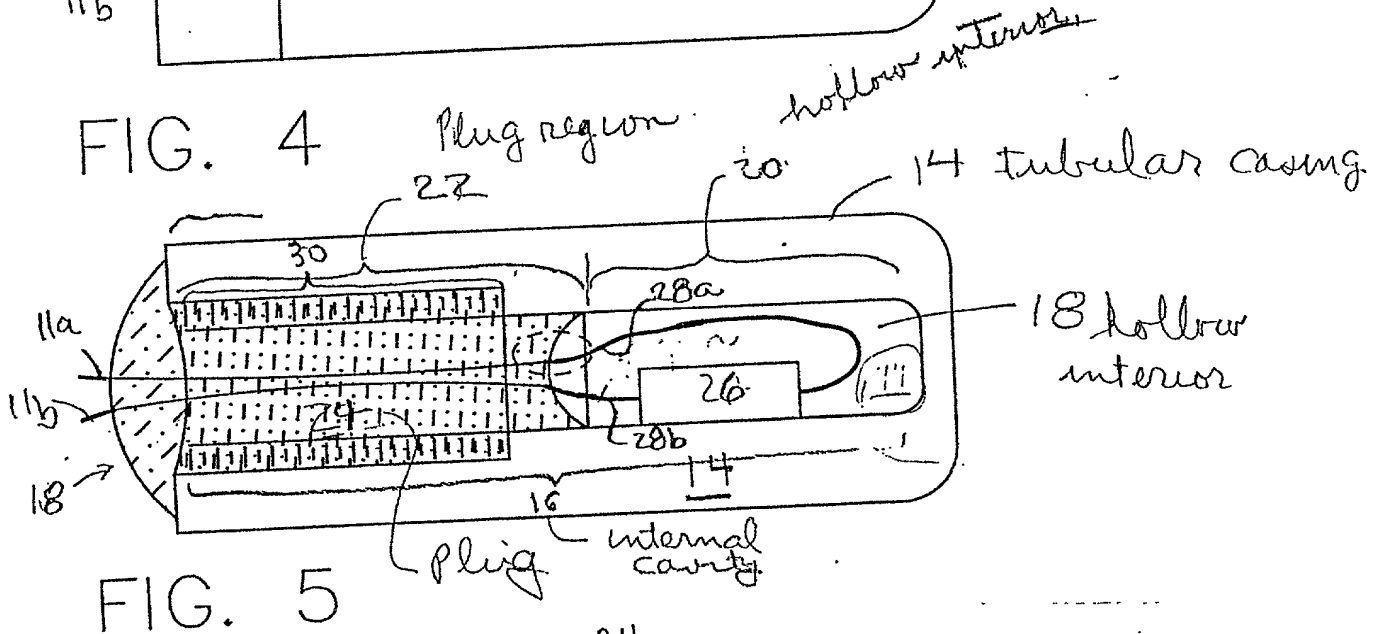 11b
hollow interior,
FIG. 4
Plug region
22
20
14 tubular casing
30
28a
11a
18 hollow
interior
26
11b
24
28b
14
18
16
internal
cavity
Plug
FIG. 5